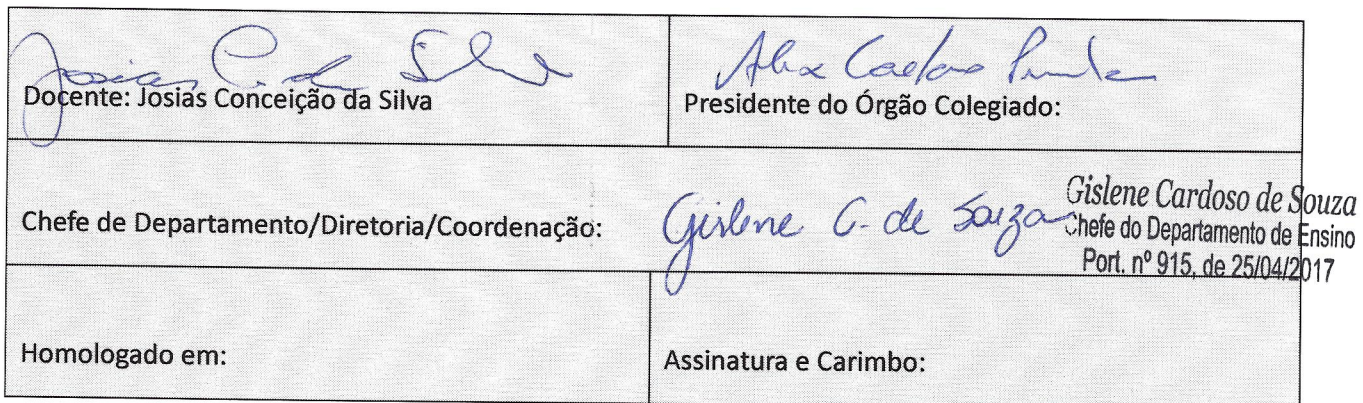 Josias C. da Silva
Alex Caetano
Docente: Josias Conceição da Silva
Presidente do Órgão Colegiado:
Chefe de Departamento/Diretoria/Coordenação:
Gislene C. de Souza
Gislene Cardoso de Souza
Chefe do Departamento de Ensino
Port. nº 915, de 25/04/2017
Homologado em:
Assinatura e Carimbo: